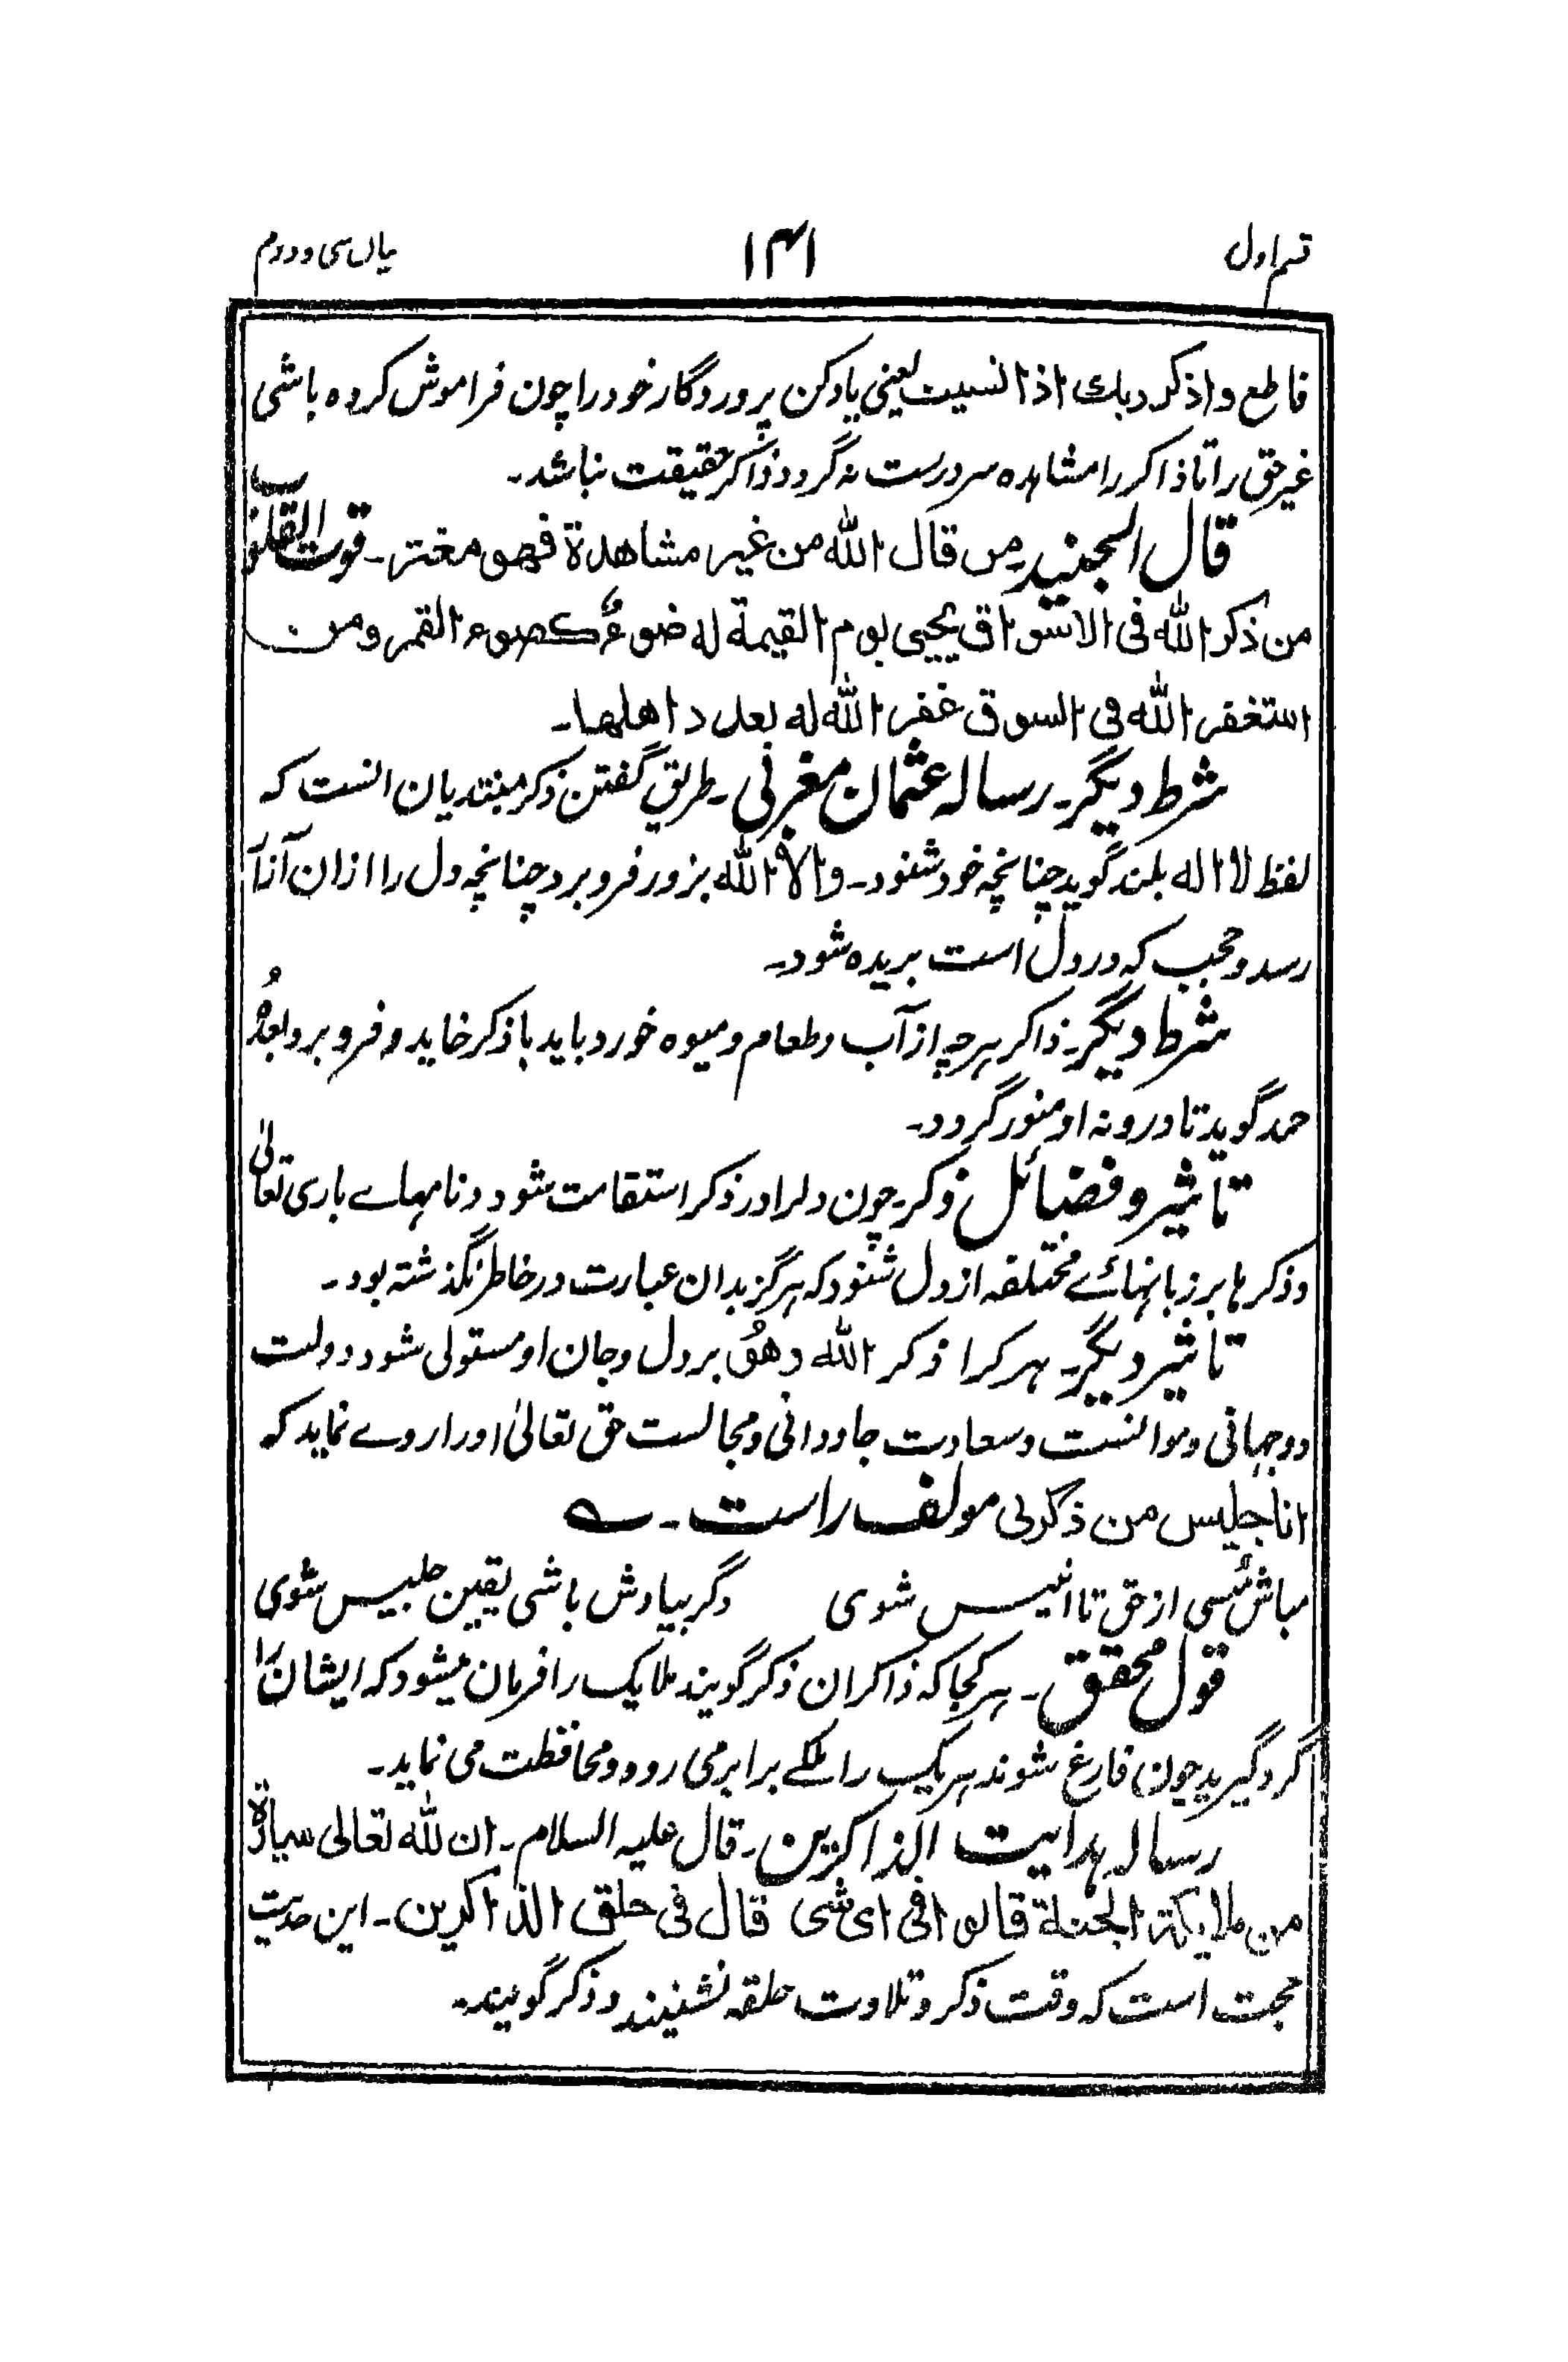 قسم اول
۱۴۱
بیاں سی و دوم
قاطع واذکر ربك اذا نسیت یعنی یاد کن پروردگار خود را چون فراموش کرده باشی
غیر حق را تا ذاکر را مشاهده سر درست نہ گردد ذاکر حقیقت نباشد۔
قال الجنید من قال الله من غیر مشاهدة فهو مغتر۔ قوت القلوب
من ذکر الله فی الاسواق یجیی یوم القیمة له ضوءٌ کضوء القمر ومن
استغفر الله فی السوق غفر الله له بعدد اهلها۔
شرط دیگر۔ رسالہ عثمان مغربی۔ طریق گفتن ذکر مبتدیان انست کہ
لفظ لا اله بلند گوید چنانچہ خود شنود۔ والا الله بزور فرو برد چنانچہ دل را ازان آزار
رسد و حجب کہ در دل است بریده شود۔
شرط دیگر۔ ذاکر ہرچہ از آب و طعام و میوه خورد باید با ذکر خاید و فرو برد بعدهُ
حمد گوید تا درونہ او منور گردد۔
تاثیر و فضائل ذکر۔ چون دلرا در ذکر استقامت شود و نامہاے باری تعالیٰ
و ذکر ہا بر زبانہائے مختلفہ از دل شنود کہ ہرگز بدان عبارت در خاطر نگذشتہ بود۔
تاثیر دیگر۔ ہر کرا ذکر الله و هوُ بر دل و جان او مستولی شود دولت
دو جہانی و موانست و سعادت جاودانی و مجالست حق تعالیٰ او را روے نماید کہ
انا جلیس من ذکرنی مولف راست۔ ؎
مباش مُنسی از حق تا انیس شوی وگر بیادش باشی یقین جلیس شوی
قول محقق۔ ہر کجا کہ ذاکران ذکر گویند ملایک را فرمان میشود کہ ایشان را
گرد گیرید چون فارغ شوند ہر یک را ملکے برابر می رود و محافظت می نماید۔
رسالہ ہدایت الذاکرین۔ قال علیہ السلام۔ ان لله تعالی سیارة
من ملایکة الجنة قالوا فی ای شی قال فی حلق الذاکرین۔ این حدیث
حجت است کہ وقت ذکر و تلاوت حلقہ نشینند و ذکر گویند۔